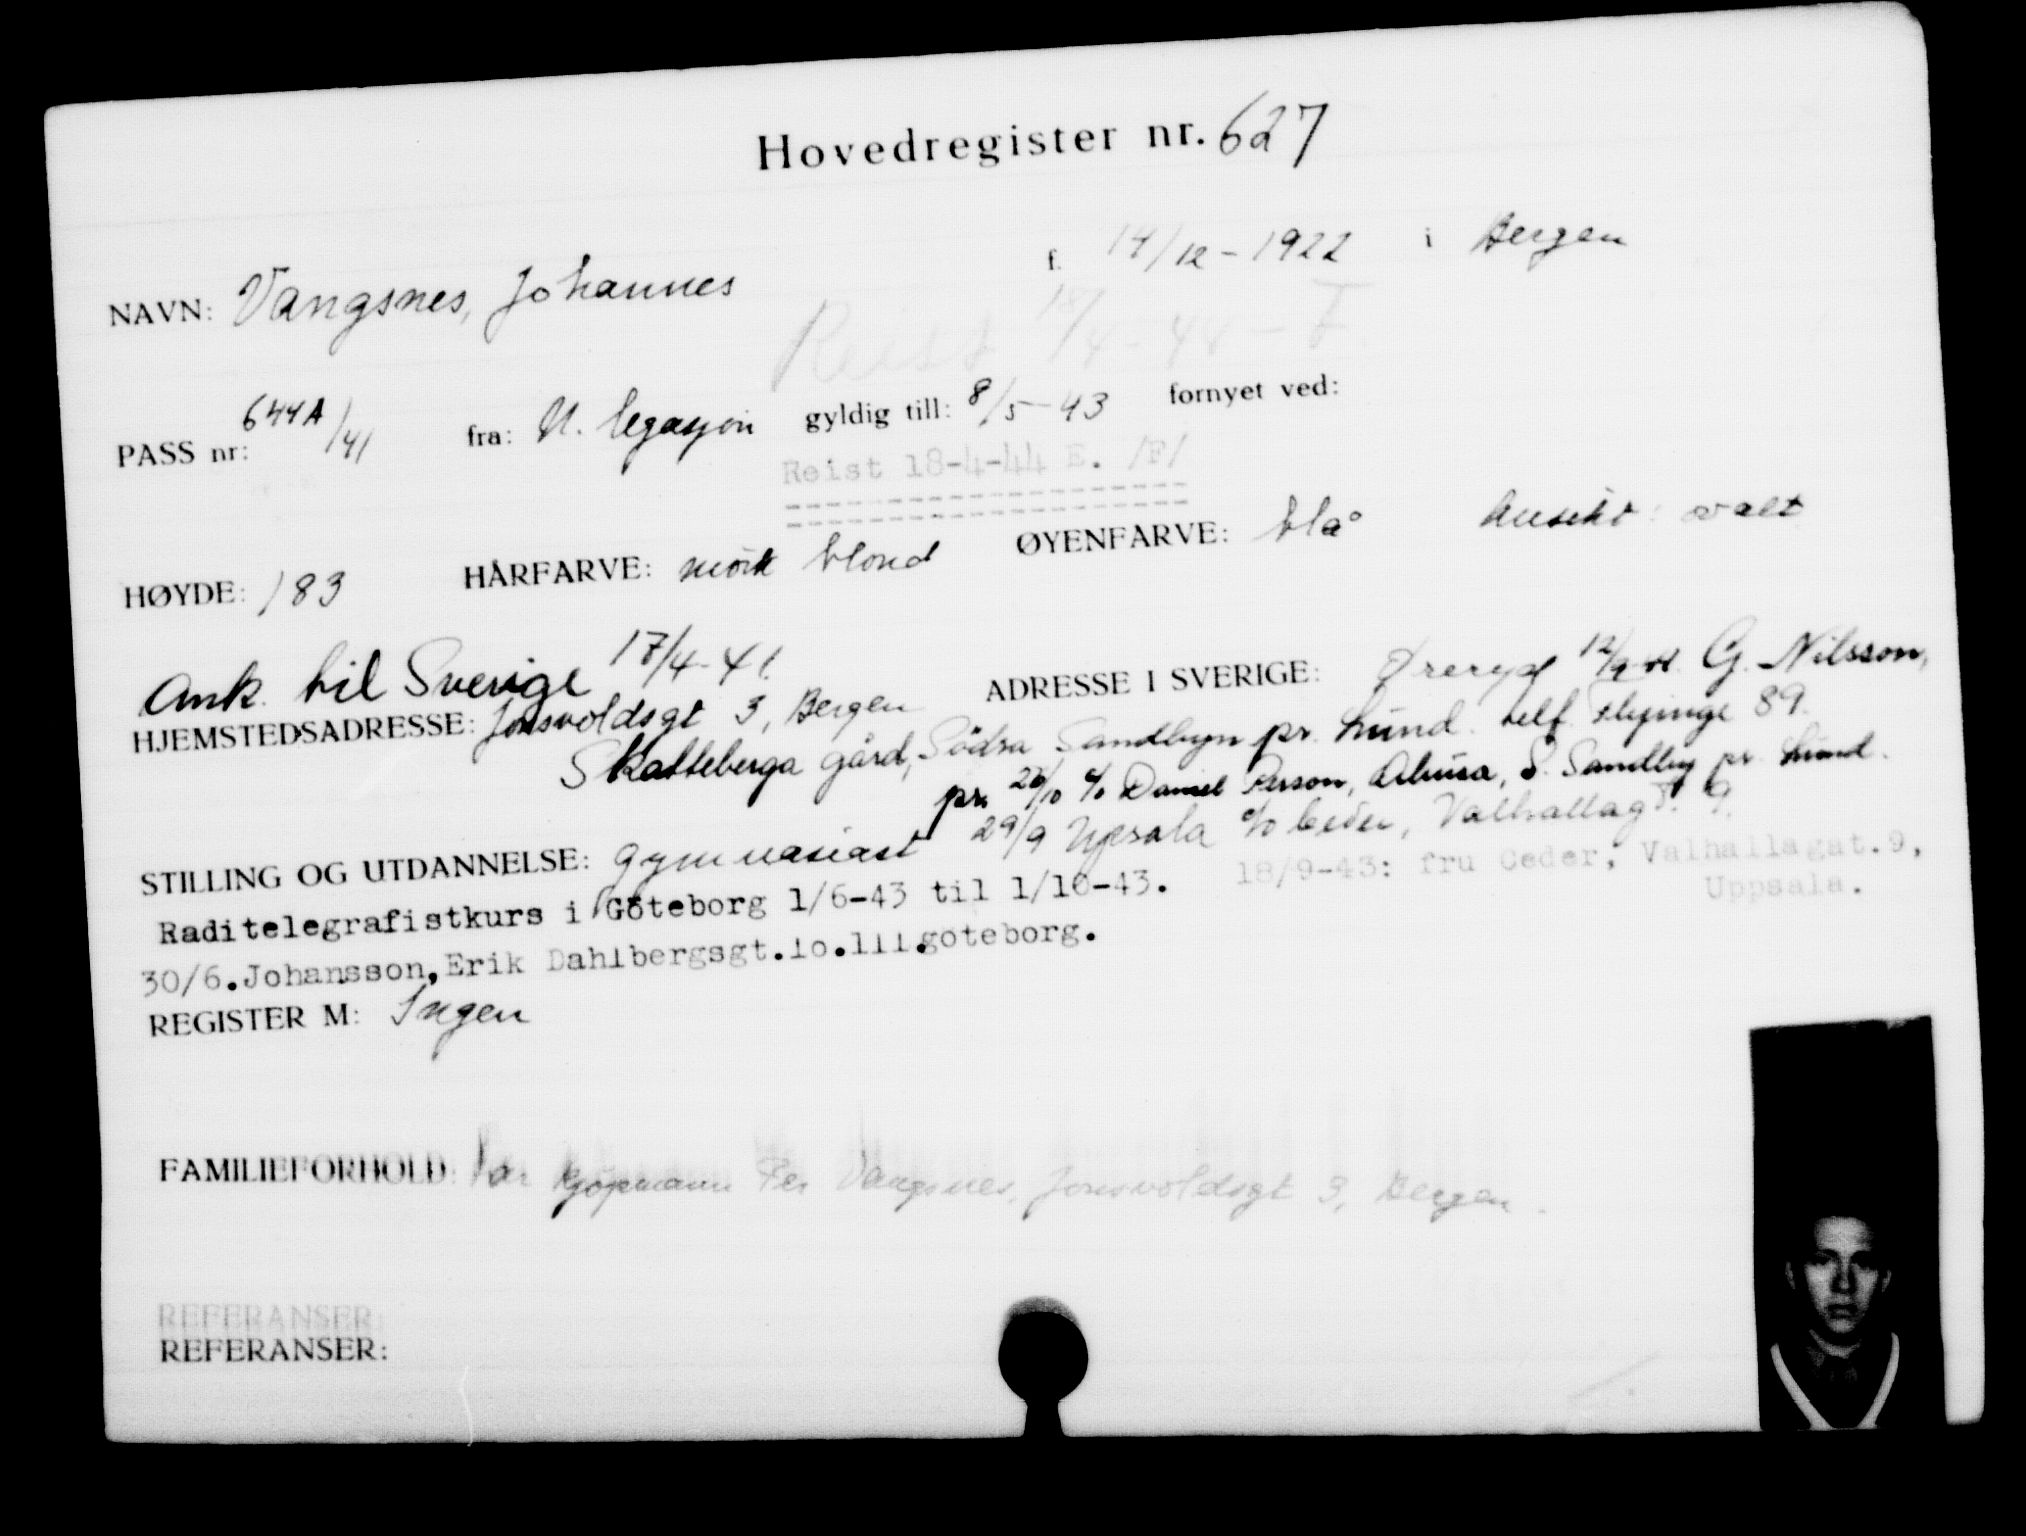 Hovedregister nr. 627
NAVN: Vangsnes, Johannes f. 14/12-1922 i Bergen
Reist 18/4-44-F
PASS nr: 644A/41 fra: N. legasjon gyldig till: 8/5-43 fornyet ved:
Reist 18-4-44 E. /F/
HØYDE: 183 HÅRFARVE: mörk blond ØYENFARVE: blå Ansikt: ovalt
Ank. til Sverige 17/4-41.
HJEMSTEDSADRESSE: Jonsvoldsgt 3, Bergen ADRESSE I SVERIGE: Öreryd 12/9-41. G. Nilsson,
Skatteberga gård, Södra Sandbyn pr. Lund. telf. Flyinge 89.
pr. 26/10 c/o Daniel Person, Arhusa, S. Sandby pr. Lund.
29/9 Upsala c/o Ceder, Valhallagt. 9.
STILLING OG UTDANNELSE: gymnasiast
18/9-43: fru Ceder, Valhallagat.9,
Uppsala.
Raditelegrafistkurs i Göteborg 1/6-43 til 1/10-43.
30/6.Johansson,Erik Dahlbergsgt.10.111.goteborg.
REGISTER M: Ingen
FAMILIEFORHOLD: Far kjøpmann Per Vangsnes, Jonsvoldsgt 3, Bergen.
REFERANSER:
REFERANSER: